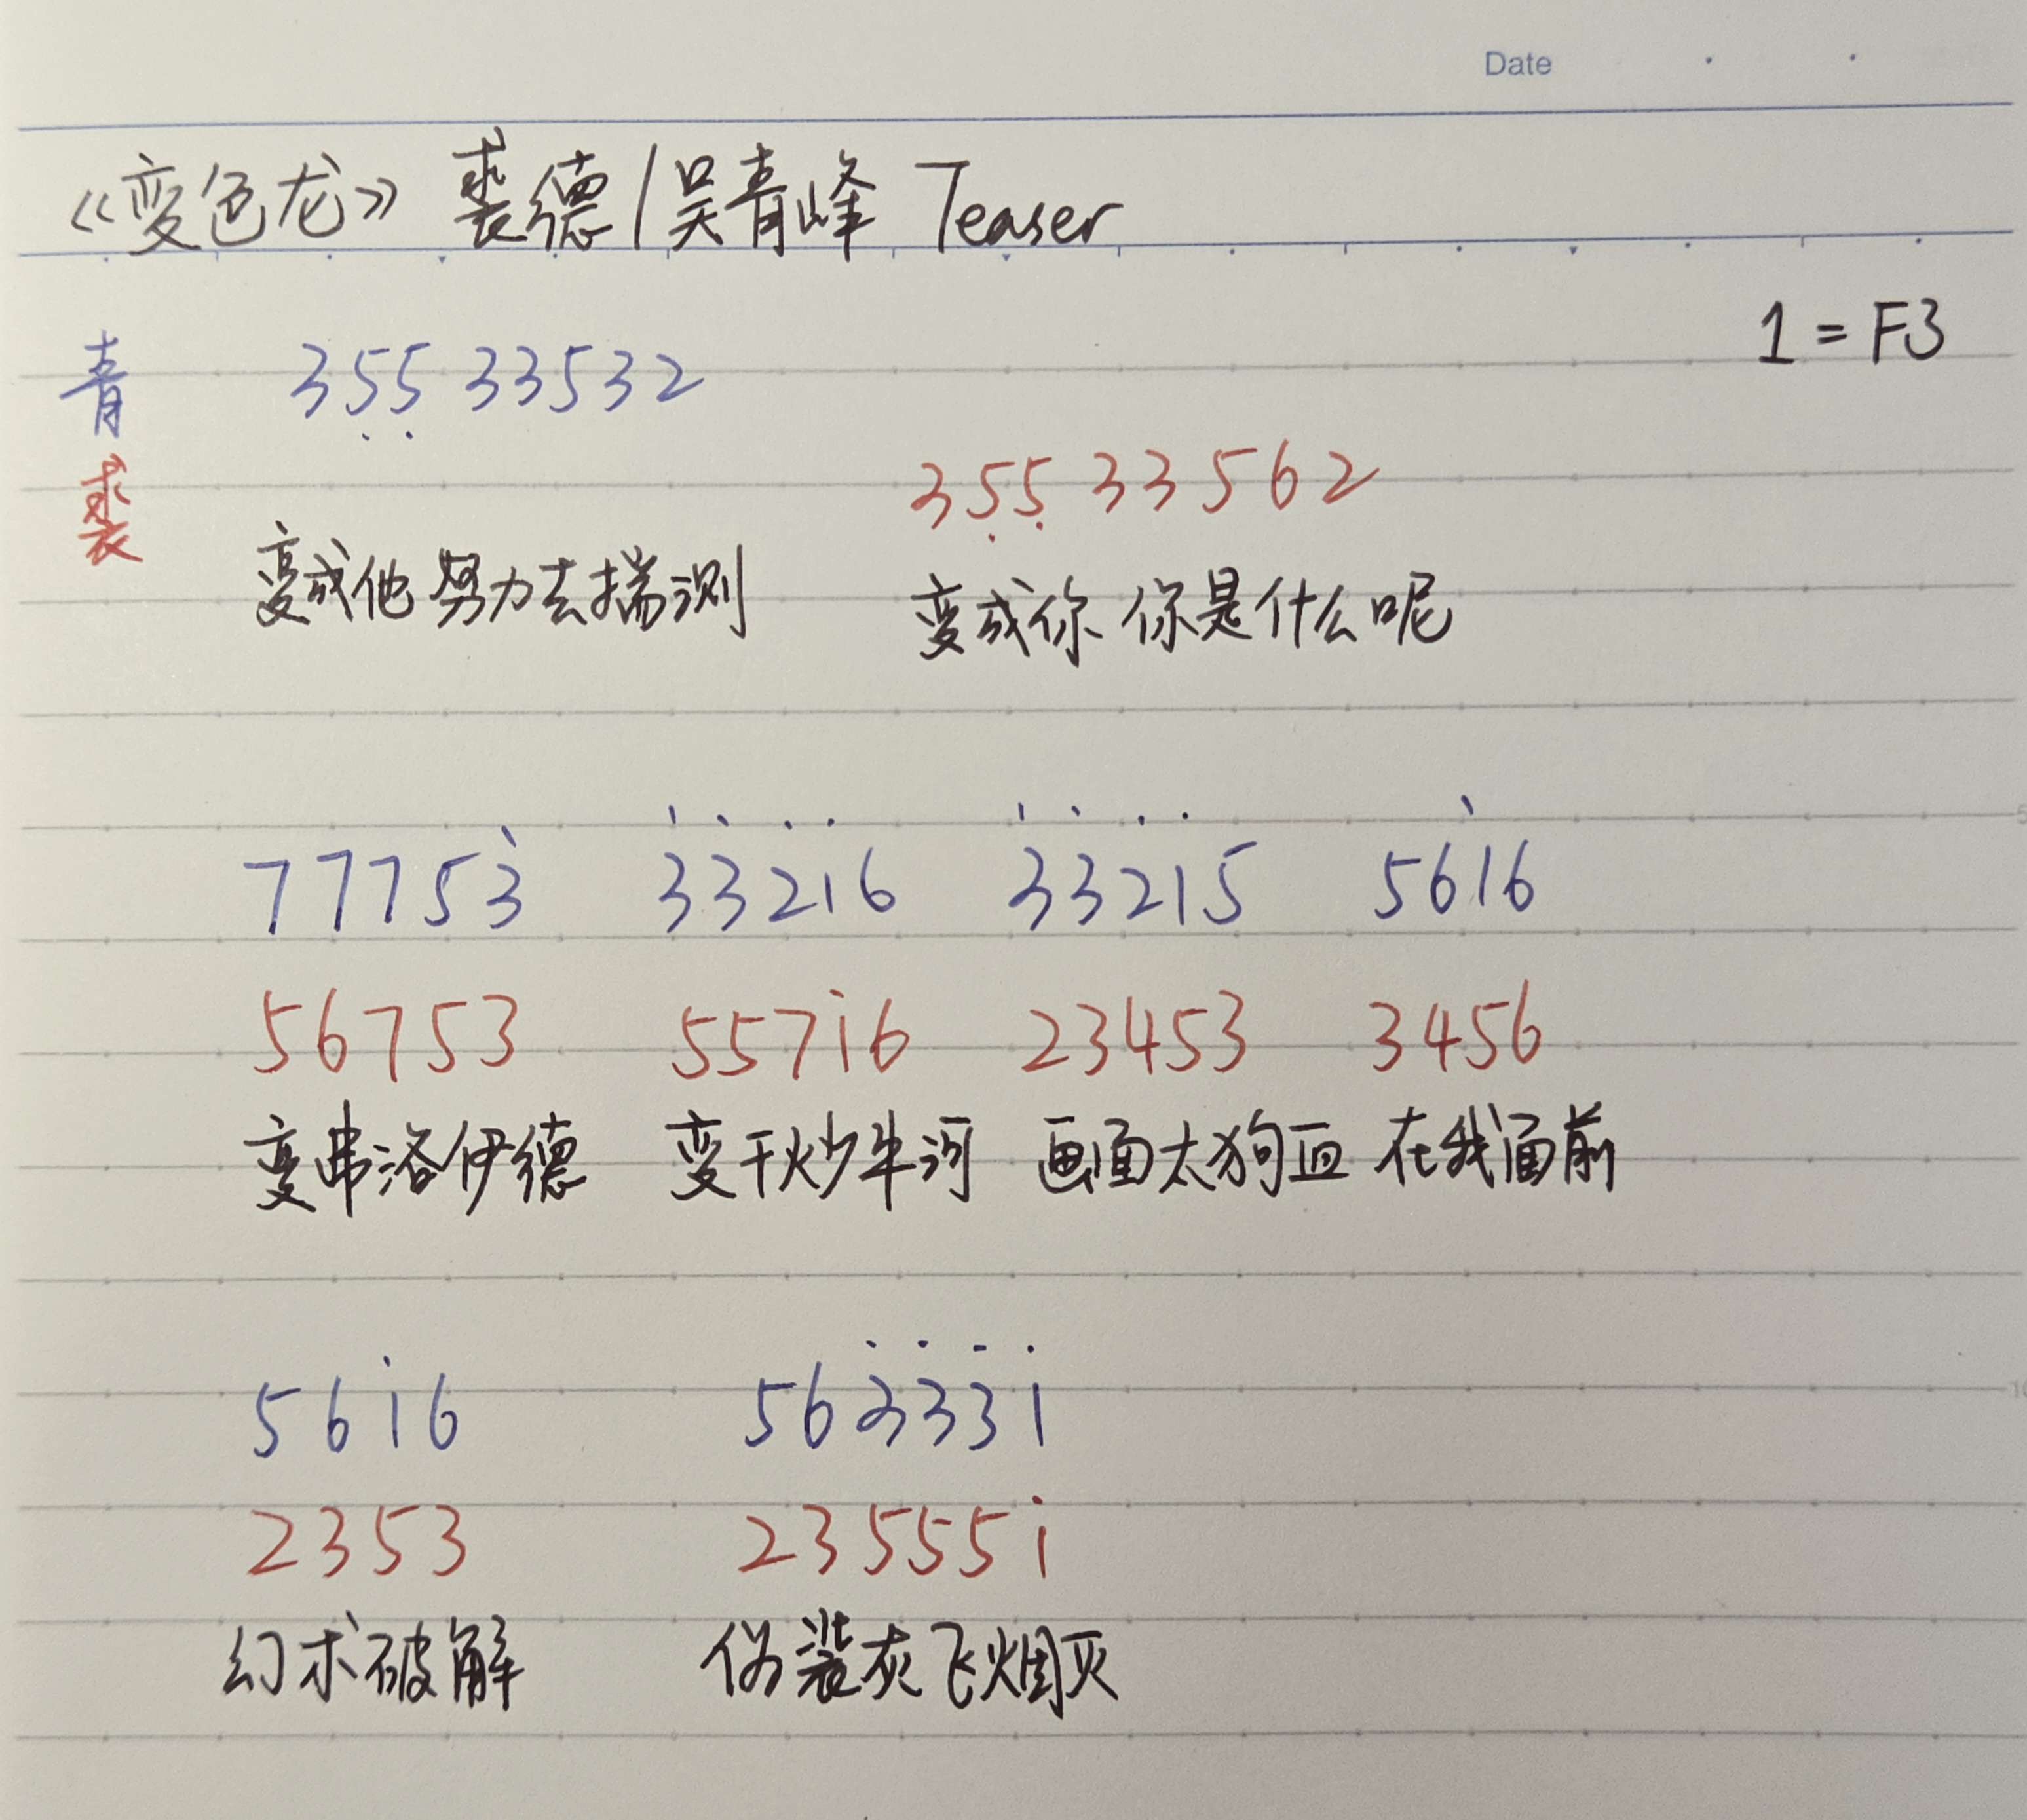 Date
《变色龙》 裘德/吴青峰 Teaser
1=F3
青 35̣5̣ 33532
裘 35̣5̣ 33562
变成他 努力去揣测 变成你 你是什么呢
77753̇ 3̇3̇2̇1̇6 3̇3̇2̇1̇5 561̇6
56753 5571̇6 23453 3456
变弗洛伊德 变干炒牛河 画面太狗血 在我面前
561̇6 563̇3̇3̇1̇
2353 235551̇
幻术破解 伪装灰飞烟灭